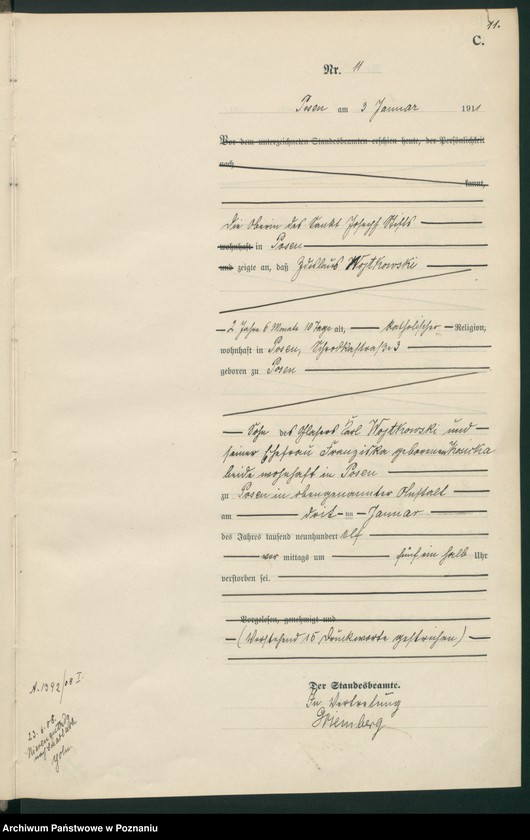 11.
C.
Nr. 11
Posen am 3 Januar 1911
Vor dem unterzeichneten Standesbeamten erschien heute, der Persönlichkeit
nach
kannt,
die Oberin des Sankt Joseph Stifts
wohnhaft in Posen
und zeigte an, daß Zdislaus Wojtkowski
2 Jahre 6 Monate 10 Tage alt, katholischer Religion,
wohnhaft in Posen, Schrodkastraße 3
geboren zu Posen
Sohn des Glasers Karl Wojtkowski und
seiner Ehefrau Franziska geborenen
beide wohnhaft in Posen
zu Posen in obengenannter Anstalt
am dritten Januar
des Jahres tausend neunhundert elf
vor mittags um fünf ein halb Uhr
verstorben sei.
Vorgelesen, genehmigt und
(Vorstehend 15 Druckworte gestrichen)
Der Standesbeamte.
In Vertretung
A. 1392/08 I.
23.6.08
Archiwum Państwowe w Poznaniu